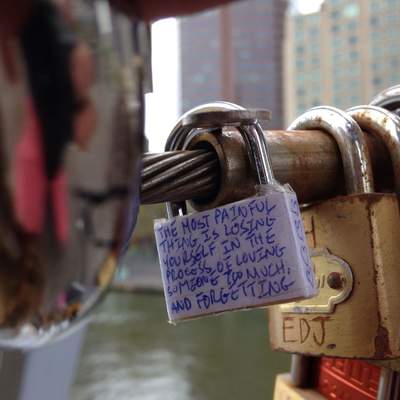 THE MOST PAINFUL
THING IS LOSING
YOURSELF IN THE
PROCESS OF LOVING
SOMEONE TOO MUCH,
AND FORGETTING
H
EDJ